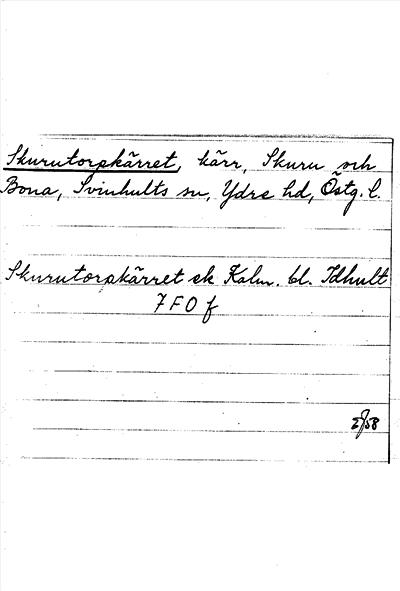 Skurutorpkärret, kärr, Skuru och
Bona, Svinhults sn, Ydre hd, Östg. l.
Skurutorpkärret ek Kalm. bl. Idhult
7 F 0 f